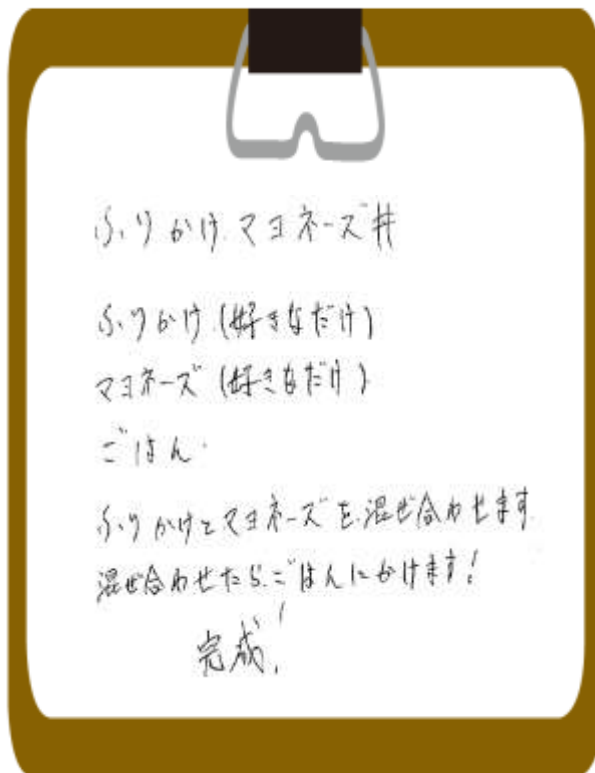 ふりかけマヨネーズ丼
ふりかけ(好きなだけ)
マヨネーズ(好きなだけ)
ごはん
ふりかけとマヨネーズを混ぜ合わせます
混ぜ合わせたらごはんにかけます!
完成!